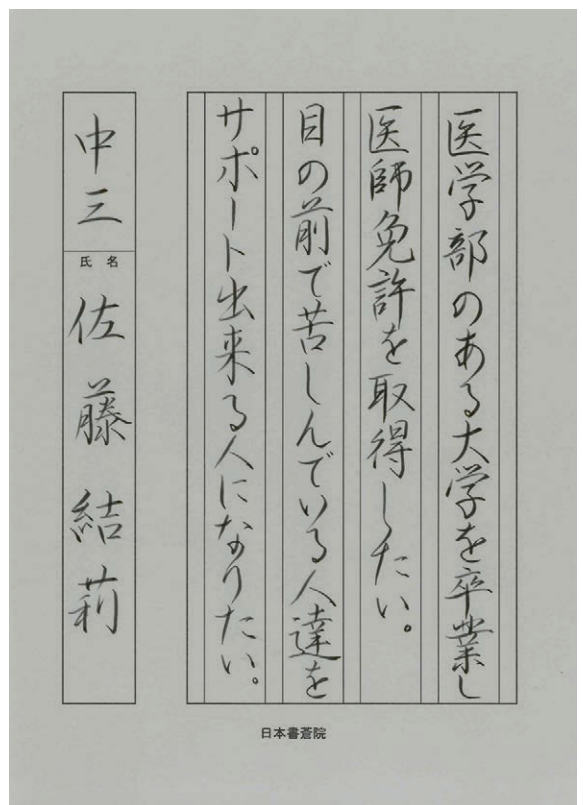 医学部のある大学を卒業し
医師免許を取得したい。
目の前で苦しんでいる人達を
サポート出来る人になりたい。
中三
氏名
佐藤結莉
日本書蒼院